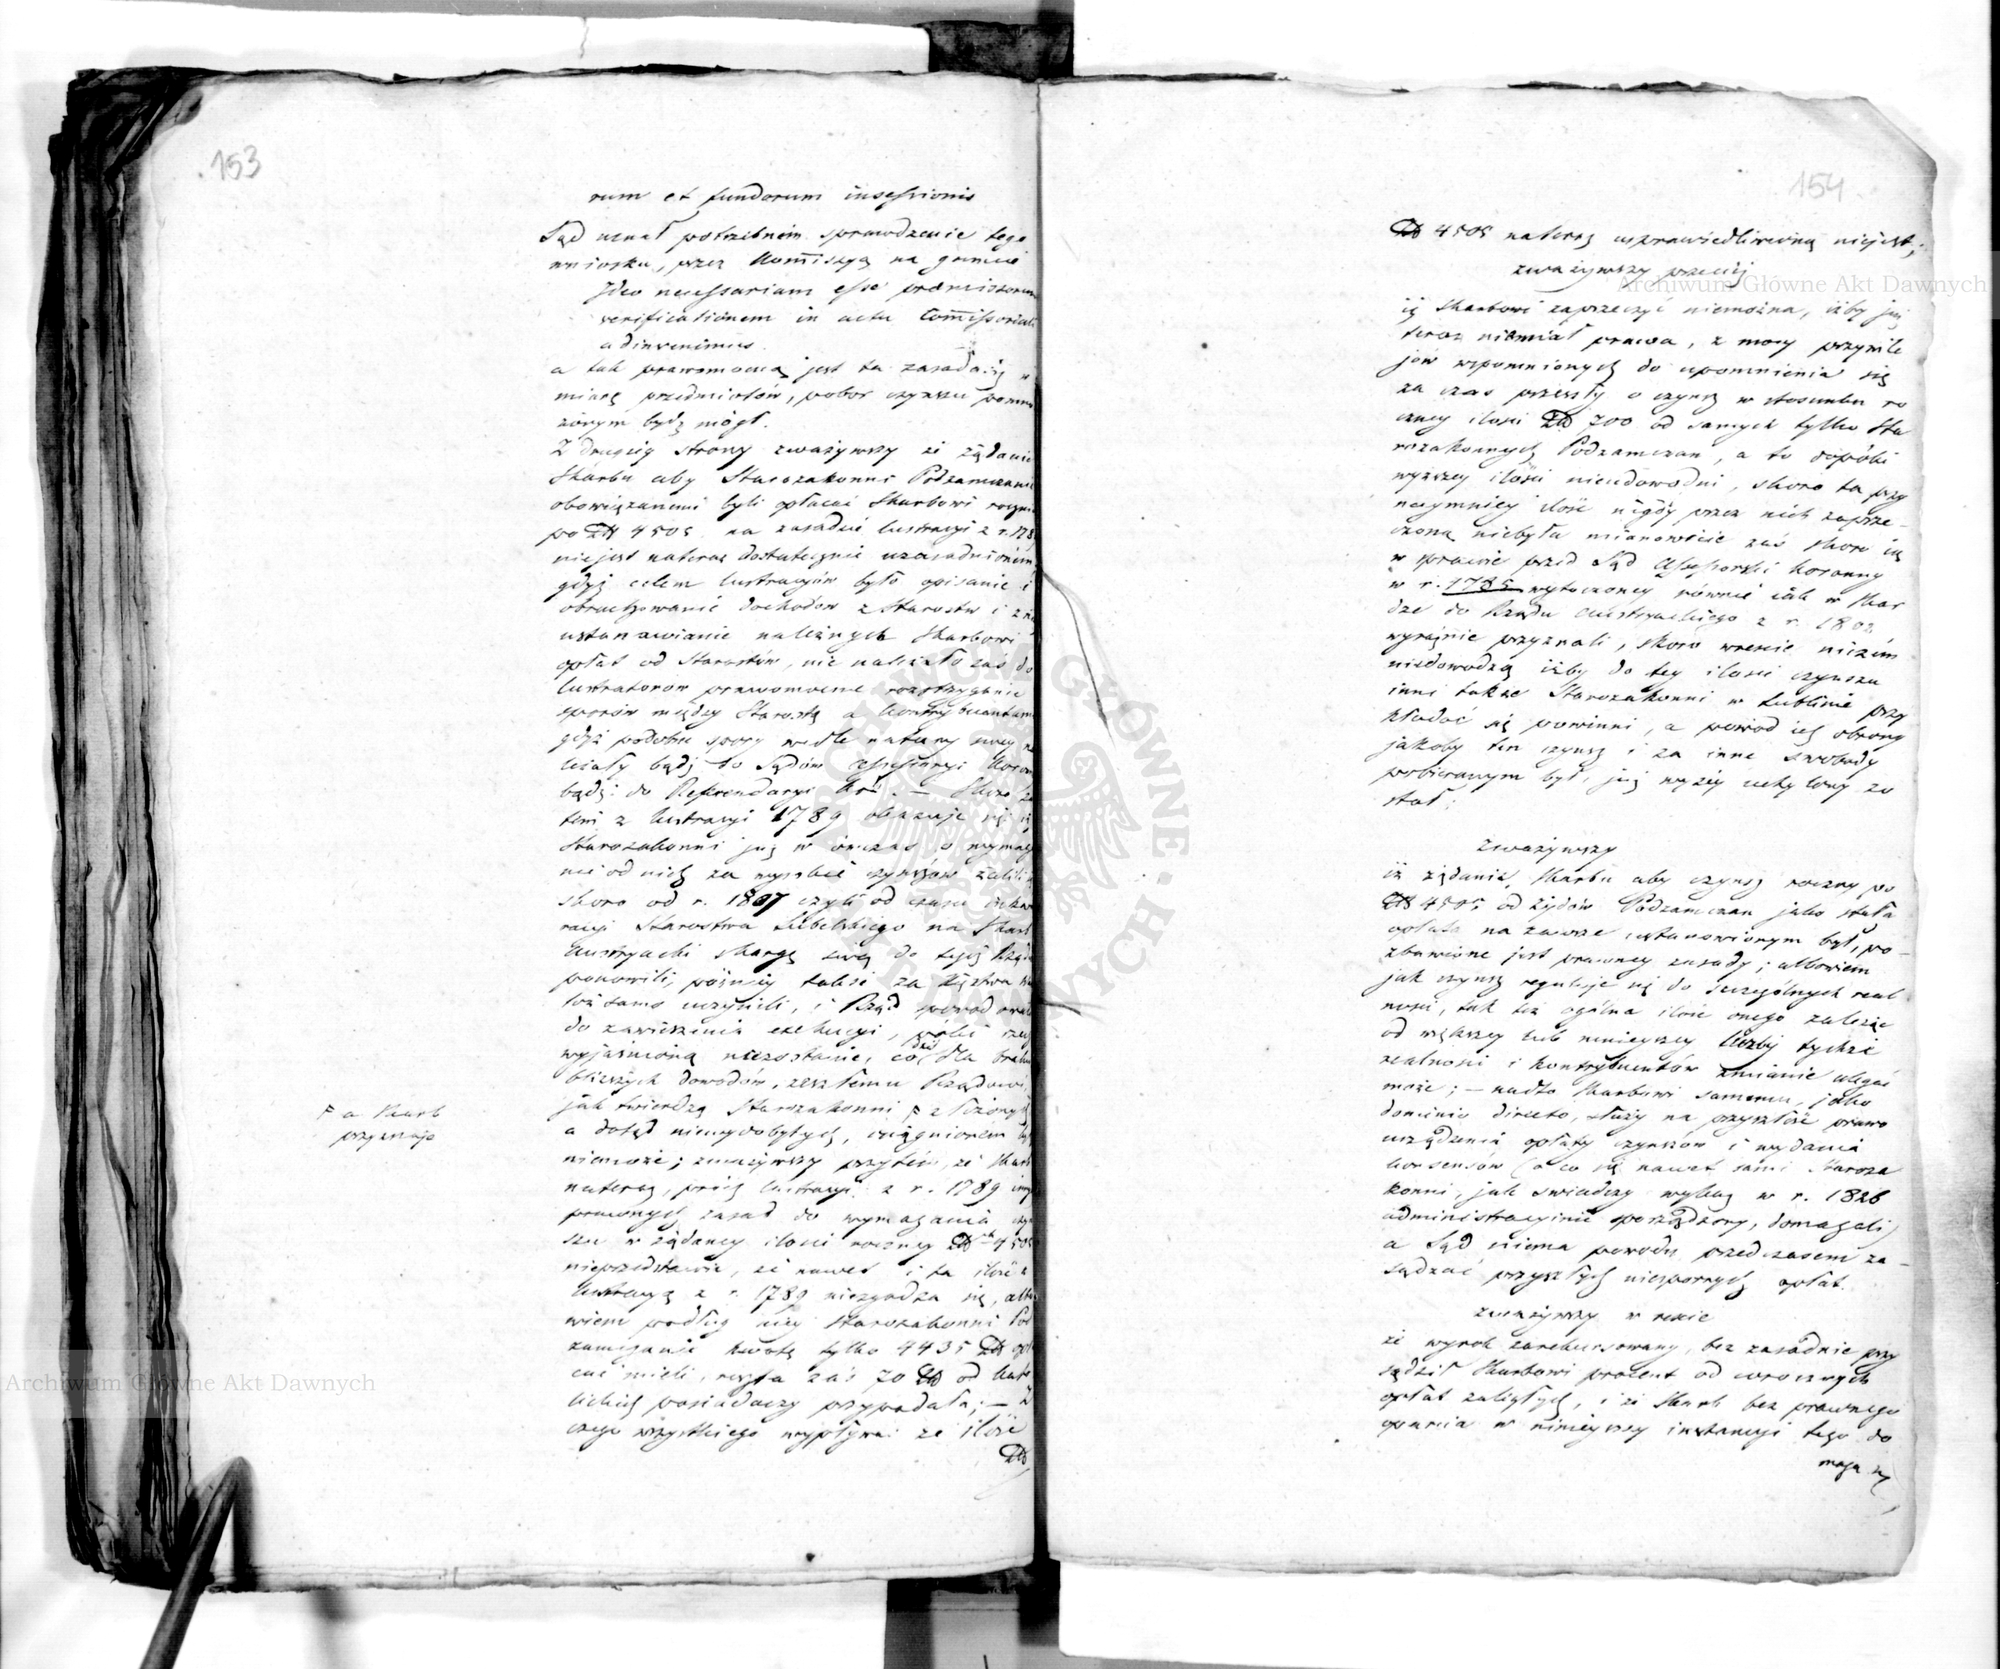 153
rum et fundorum insessionis
Sąd uznał potrzebnem sprawdzenie tego
wniosku, przez Kommissyą na gruncie
Ideo necessariam esse praemissorum
verificationem in actu Commissoriali
adinvenimus.
a tak prawomocną jest ta zasada iż w
miarę przedmiotów, pobor czynszu pomno
żonym bydź mógł.
Z drugiey strony zważywszy że żądanie
Skarbu aby Starozakonni Podzamczanie
obowiązanemi byli opłacać Skarbowi rocznie
po Złł 4505 na zasadzie lustracyi z r. 1789
niejest nateraz dostatecznie uzasadnionem
gdyż celem lustracyów było opisanie i
obrachowanie dochodów z Starostw i
ustanawianie należnych Skarbowi
opłat od Starostów, nie należało zaś do
lustratorów prawomocne rozstrzyganie
sporów między Starostą a kontrybuentami
gdyż podobne spory wedle natury swey na
leżały bądź do Sądów Assessoryi Koron
bądź do Referendaryi Kor. — Skoro za
tem z lustracyi 1789 okazuje się iż
Starozakonni już w ówczas o wymaga
nie od nich za wysokie czynszów żalili
skoro od r. 1807 czyli od czasu
racyi Starostwa Lubelskiego na Skarb
Austryacki skargę swą do tegoż Rządu
ponowili, późniey także za Xięstwa
toż samo uczynili, i Rząd spowodowali
do zawieszenia exekucyi, póki rzecz
wyjaśnioną niezostanie, co dla braku
bliższych dowodów, zeszłemu Rządowi,
jak twierdzą Starozakonni F złożonych
F a Skarb
przyznaje
a dotąd niewydobytych, uciągnionem być
niemoże; zważywszy przytem, że Skarb
nateraz, prócz lustracyi z r. 1789 innych
prawnych zasad do wymagania czyn
szu w żądaney ilości roczney Złł 4505
nieprzedstawia, że nawet i ta ilość z
lustracyą z r. 1789 niezgadza się, albo
wiem podług niey Starozakonni Pod
zamczanie kwotę tylko 4435 Złł opła
cać mieli, reszta zaś 70 Złł od kato
lickich posiadaczy przypadała; — Z
czego wszystkiego wypływa: że ilość
Złł
154
Złł 4505 nateraz usprawiedliwioną niejest;
zważywszy przeciéż
iż Skarbowi zaprzeczyć niemożna, iżby już
teraz niemiał prawa, z mocy przywile
jów wspomnionych do upomnienia się
za czas przeszły o czynsz w stosunku ro
czney ilości Złł 700 od samych tylko Sta
rozakonnych Podzamczan, a to dopóki
wyższey ilości nieudowodni, skoro ta przy
naymniey ilość nigdy przez nich zaprze-
czoną niebyła mianowicie zaś skoro ią
w sprawie przed Sąd Assessorski koronny
w r. 1785 wytoczoney równie iak w skar
dze do Rządu Austryackiego z r. 1802
wyraźnie przyznali, skoro wreście niczém
niedowodzą iżby do tey ilości czynszu
inni także Starozakonni w Lublinie przy
kładać się powinni, a powód ich obrony
jakoby ten czynsz i za inne swobody
pobieranym był, już wyżey uchylony zo
stał;
Zważywszy
iż żądanie Skarbu aby czynsz roczny po
Złł 4505 od żydów Podzamczan jako stała
opłata na zawsze ustanowionym był, po-
zbawione jest prawney zasady; albowiem
jak czynsz reguluje się do szczególnych real
ności, tak też ogólna ilość onego zależąc
od większey lub mnieyszey liczby tychże
realności i kontrybuentów zmianie uledz
może; — nadto Skarbowi samemu, jako
dominio directo, służy na przyszłość prawo
urządzenia opłaty czynszów i wydania
konsensów (o co się nawet sami Staroza
konni, jak świadczy wykaz w r. 1826
administracyinie sporządzony, domagali)
a Sąd niema powodu przed czasem za-
sądzać przyszłych niespornych opłat.
zważywszy w reście
że wyrok zarekursowany, bez zasadnie przy
sądził Skarbowi procent od corocznych
opłat zaległych, i że Skarb bez prawnego
oparcia w ninieyszey instancyi tego do
maga się
Archiwum Główne Akt Dawnych
Archiwum Główne Akt Dawnych